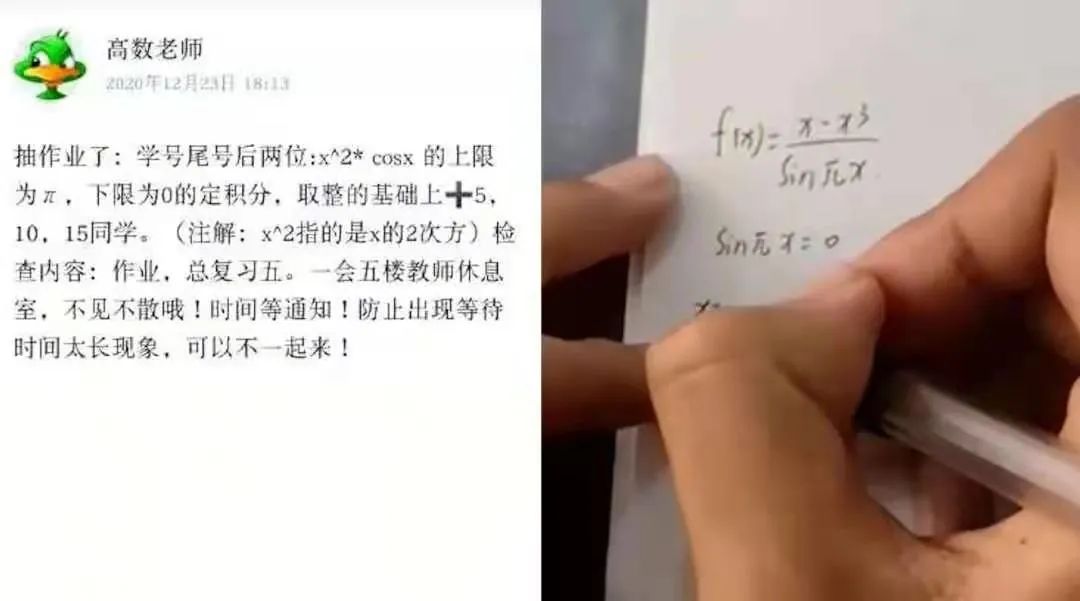 高数老师
2020年12月23日 18:13
抽作业了：学号尾号后两位:x^2* cosx 的上限
为π，下限为0的定积分，取整的基础上➕5，
10，15同学。（注解：x^2指的是x的2次方）检
查内容：作业，总复习五。一会五楼教师休息
室，不见不散哦！时间等通知！防止出现等待
时间太长现象，可以不一起来！
f(x)= x-x³
sinπx
sinπx=0